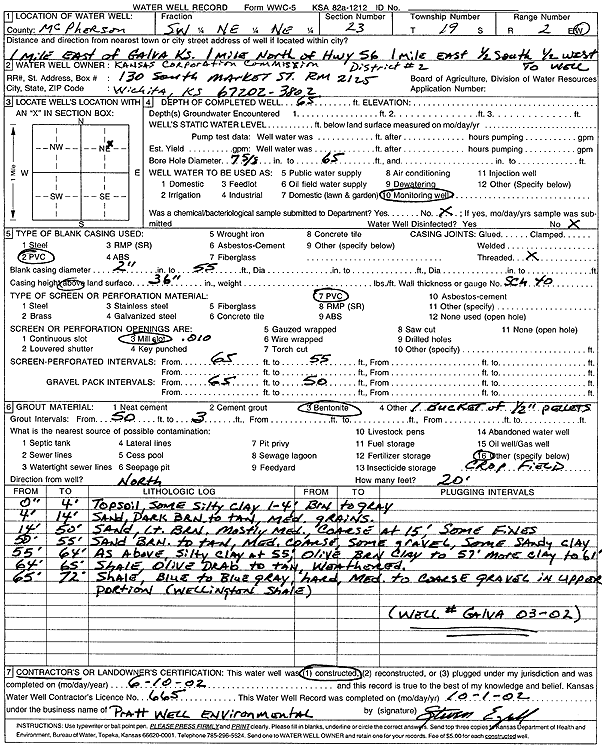 WATER WELL RECORD Form WWC-5 KSA 82a-1212 ID No.
1 LOCATION OF WATER WELL: Fraction Section Number Township Number Range Number
County: McPherson SW ¼ NE ¼ NE ¼ 23 T 19 S R 2 E W
Distance and direction from nearest town or city street address of well if located within city?
1 mile East of Galva KS. 1 mile North of Hwy 56 1 mile East ½ South ½ West To Well
2 WATER WELL OWNER: Kansas Corporation Commission District #2
RR#, St. Address, Box # : 130 South Market St. RM 2125 Board of Agriculture, Division of Water Resources
City, State, ZIP Code : Wichita, KS 67202-3802 Application Number:
3 LOCATE WELL'S LOCATION WITH AN "X" IN SECTION BOX:
N
NW NE X
W E
SW SE
S
1 Mile
4 DEPTH OF COMPLETED WELL 65 ft. ELEVATION:
Depth(s) Groundwater Encountered 1 ft. 2 ft. 3 ft.
WELL'S STATIC WATER LEVEL ft. below land surface measured on mo/day/yr
Pump test data: Well water was ft. after hours pumping gpm
Est. Yield gpm: Well water was ft. after hours pumping gpm
Bore Hole Diameter 7 5/8 in. to 65 ft., and in. to ft.
WELL WATER TO BE USED AS: 5 Public water supply 8 Air conditioning 11 Injection well
1 Domestic 3 Feedlot 6 Oil field water supply 9 Dewatering 12 Other (Specify below)
2 Irrigation 4 Industrial 7 Domestic (lawn & garden) 10 Monitoring well
Was a chemical/bacteriological sample submitted to Department? Yes No X; If yes, mo/day/yrs sample was submitted
Water Well Disinfected? Yes No X
5 TYPE OF BLANK CASING USED: 5 Wrought iron 8 Concrete tile CASING JOINTS: Glued Clamped
1 Steel 3 RMP (SR) 6 Asbestos-Cement 9 Other (specify below) Welded
2 PVC 4 ABS 7 Fiberglass Threaded X
Blank casing diameter 2" in. to 55 ft., Dia in. to ft., Dia in. to ft.
Casing height above land surface 36" in., weight lbs./ft. Wall thickness or gauge No. SCH 40
TYPE OF SCREEN OR PERFORATION MATERIAL: 7 PVC 10 Asbestos-cement
1 Steel 3 Stainless steel 5 Fiberglass 8 RMP (SR) 11 Other (specify)
2 Brass 4 Galvanized steel 6 Concrete tile 9 ABS 12 None used (open hole)
SCREEN OR PERFORATION OPENINGS ARE: 5 Gauzed wrapped 8 Saw cut 11 None (open hole)
1 Continuous slot 3 Mill slot .010 6 Wire wrapped 9 Drilled holes
2 Louvered shutter 4 Key punched 7 Torch cut 10 Other (specify)
SCREEN-PERFORATED INTERVALS: From 65 ft. to 55 ft., From ft. to ft.
From ft. to ft., From ft. to ft.
GRAVEL PACK INTERVALS: From 65 ft. to 50 ft., From ft. to ft.
From ft. to ft., From ft. to ft.
6 GROUT MATERIAL: 1 Neat cement 2 Cement grout 3 Bentonite 4 Other 1 Bucket of ½" Pellets
Grout Intervals: From 50 ft. to 3 ft., From ft. to ft., From ft. to ft.
What is the nearest source of possible contamination: 10 Livestock pens 14 Abandoned water well
1 Septic tank 4 Lateral lines 7 Pit privy 11 Fuel storage 15 Oil well/Gas well
2 Sewer lines 5 Cess pool 8 Sewage lagoon 12 Fertilizer storage 16 Other (specify below)
3 Watertight sewer lines 6 Seepage pit 9 Feedyard 13 Insecticide storage Crop Field
Direction from well? North How many feet? 20'
FROM TO LITHOLOGIC LOG FROM TO PLUGGING INTERVALS
0" 4' Topsoil, Some Silty Clay 1-4' Brn to Gray
4' 14' Sand, Dark Brn to Tan, Med. Grains.
14' 50' Sand, Lt. Brn, Mostly Med. Coarse at 15' Some Fines
50' 55' Sand Brn. to Tan, Med. Coarse, Some Gravel, Some Sandy Clay
55' 64' As Above Silty Clay at 55', Olive Brn Clay to 57' More Clay to 61'
64' 65' Shale, Olive Drab to Tan, Weathered.
65' 72' Shale, Blue to Blue Gray, Hard, Med. to Coarse Gravel in Upper
Portion (Wellington Shale)
(Well # Galva 03-02)
7 CONTRACTOR'S OR LANDOWNER'S CERTIFICATION: This water well was (1) constructed, (2) reconstructed, or (3) plugged under my jurisdiction and was
completed on (mo/day/year) 6-10-02 and this record is true to the best of my knowledge and belief. Kansas
Water Well Contractor's Licence No. 665 This Water Well Record was completed on (mo/day/yr) 10-1-02
under the business name of Pratt Well Environmental by (signature)
INSTRUCTIONS: Use typewriter or ball point pen. PLEASE PRESS FIRMLY and PRINT clearly. Please fill in blanks, underline or circle the correct answers. Send top three copies to Kansas Department of Health and
Environment, Bureau of Water, Topeka, Kansas 66620-0001. Telephone 785-296-5524. Send one to WATER WELL OWNER and retain one for your records. Fee of $5.00 for each constructed well.